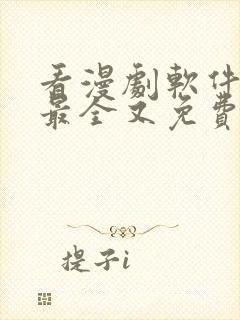 看漫劇軟件
最全又免費
提子i